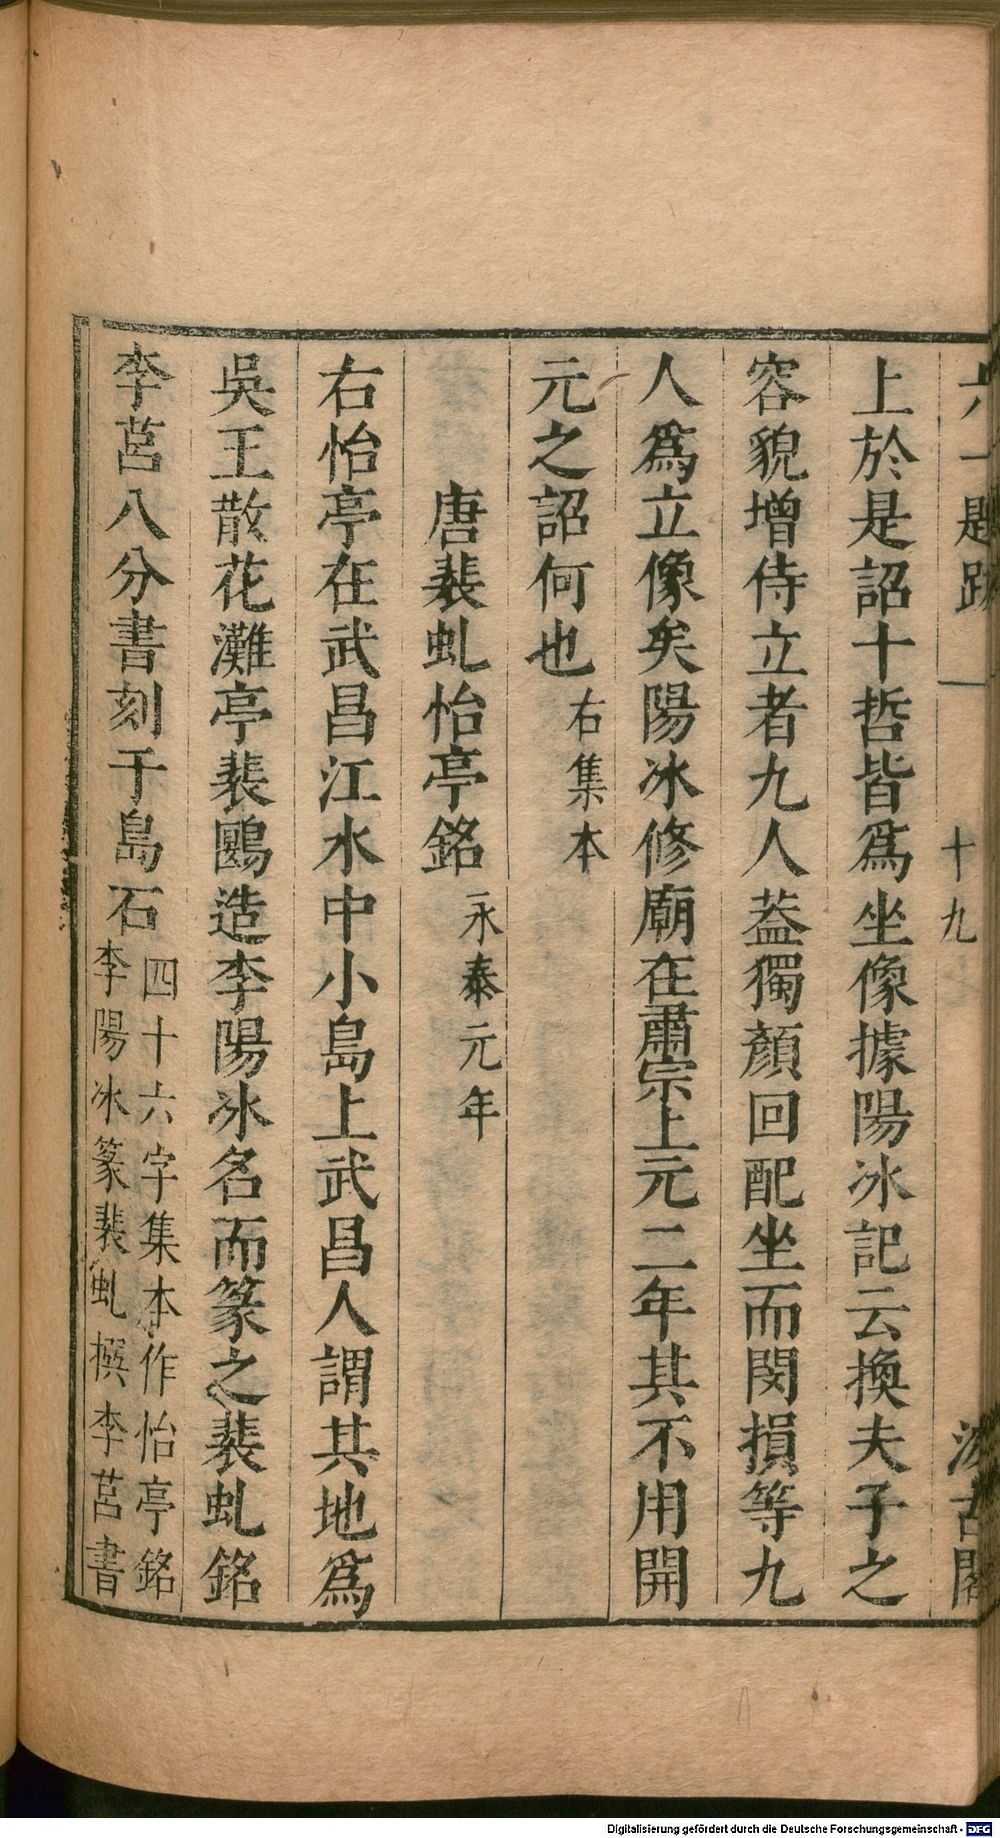 六一題跋 十九 汲古閣
上於是詔十哲皆爲坐像據陽冰記云換夫子之
容貌增侍立者九人葢獨顏回配坐而閔損等九
人爲立像矣陽冰修廟在肅宗上元二年其不用開
元之詔何也右集本
唐裴虬怡亭銘永泰元年
右怡亭在武昌江水中小島上武昌人謂其地爲
吳王散花灘亭裴鶠造李陽冰名而篆之裴虬銘
李莒八分書刻于島石四十六字集本作怡亭銘
李陽冰篆裴虬撰李莒書
Digitalisierung gefördert durch die Deutsche Forschungsgemeinschaft - DFG